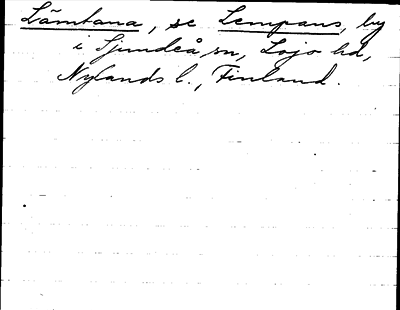 Lämtana, se Lempans, by
i Sjundeå sn, Lojo hd,
Nylands l., Finland.